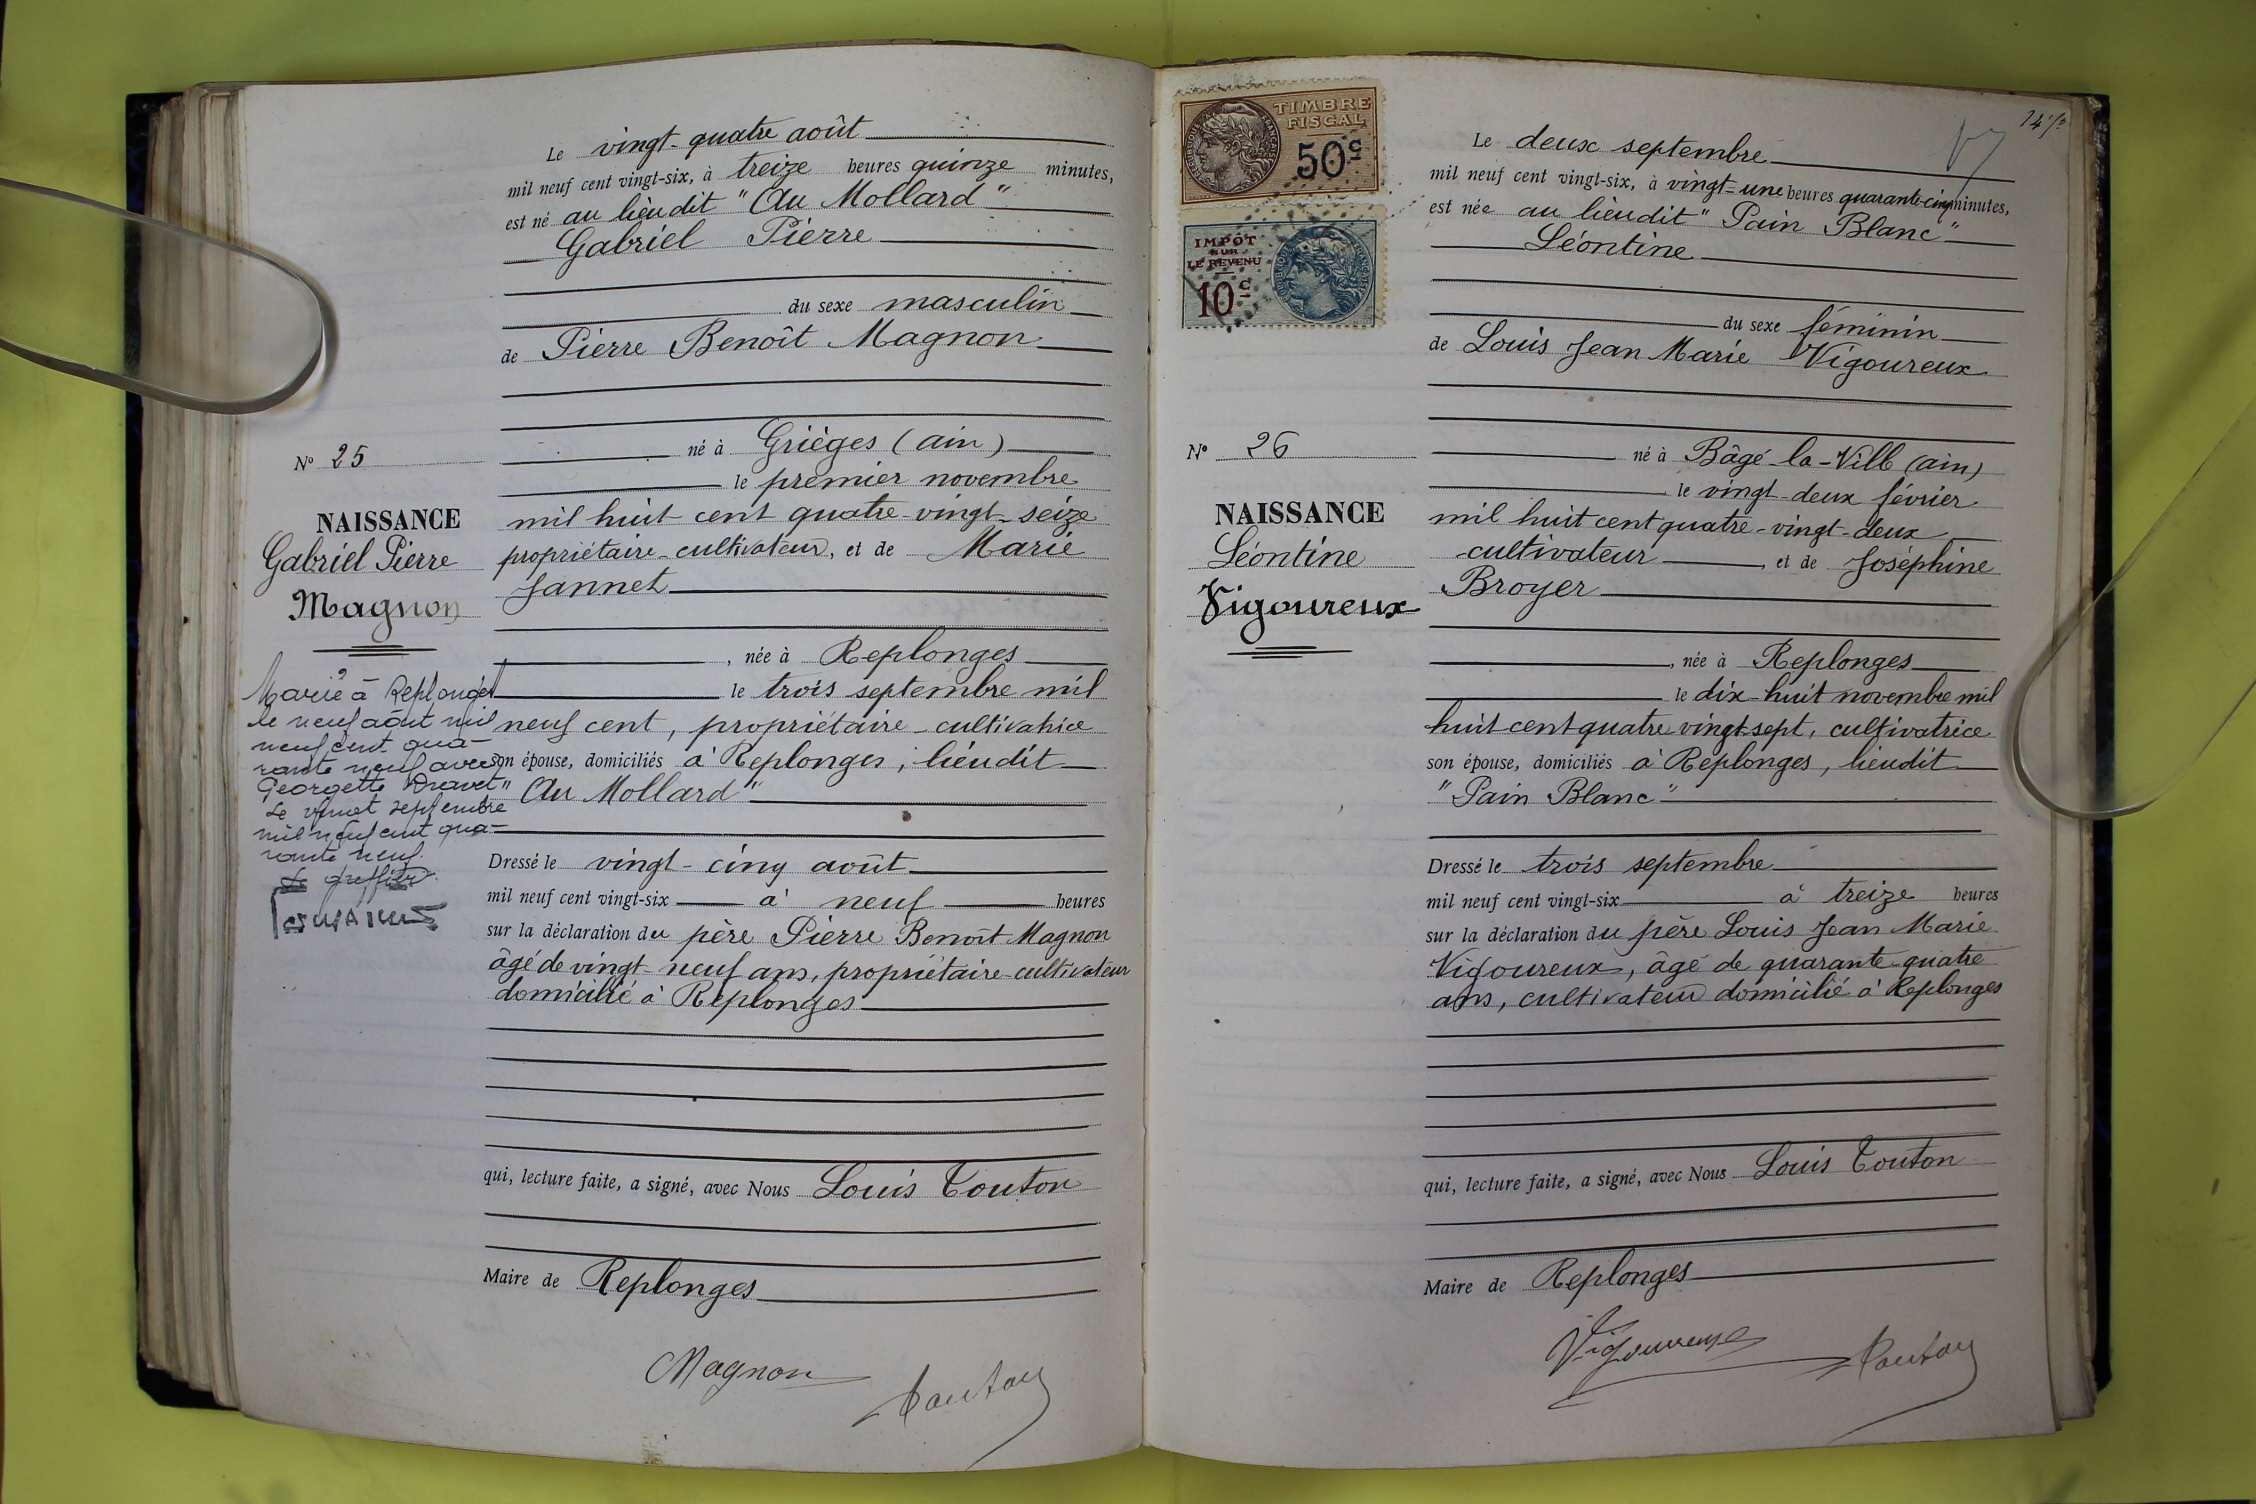 Le vingt-quatre août
mil neuf cent vingt-six, à treize heures quinze minutes,
est né au lieu dit "Au Mollard"
Gabriel Pierre
du sexe masculin
de Pierre Benoît Magnon
né à Grièges (ain)
le premier novembre
mil huit cent quatre-vingt-seize
propriétaire-cultivateur, et de Marie
Jannet
, née à Replonges
le trois septembre mil
neuf cent, propriétaire-cultivatrice
son épouse, domiciliés à Replonges, lieudit
"Au Mollard"
Dressé le vingt-cinq août
mil neuf cent vingt-six à neuf heures
sur la déclaration du père Pierre Benoît Magnon
âgé de vingt-neuf ans, propriétaire-cultivateur
domicilié à Replonges
qui, lecture faite, a signé, avec Nous Louis Touton
Maire de Replonges
Magnon Touton
N° 25
NAISSANCE
Gabriel Pierre
Magnon
Marié à Replonges
le neuf août mil
neuf cent qua-
rante neuf avec
Georgette Dravet
Le vingt septembre
mil neuf cent qua-
rante neuf.
Le greffier
TIMBRE
FISCAL
50c
IMPÔT
SUR
LE REVENU
10c
N° 26
NAISSANCE
Léontine
Vigoureux
Le deux septembre
mil neuf cent vingt-six, à vingt-une heures quarante-cinq minutes,
est née au lieu dit "Pain Blanc"
Léontine
du sexe féminin
de Louis Jean Marie Vigoureux
né à Bâgé-la-Ville (ain)
le vingt-deux février
mil huit cent quatre-vingt-deux
cultivateur, et de Joséphine
Broyer
, née à Replonges
le dix-huit novembre mil
huit cent quatre vingt-sept, cultivatrice
son épouse, domiciliés à Replonges, lieudit
"Pain Blanc"
Dressé le trois septembre
mil neuf cent vingt-six à treize heures
sur la déclaration du père Louis Jean Marie
Vigoureux, âgé de quarante-quatre
ans, cultivateur domicilié à Replonges
qui, lecture faite, a signé, avec Nous Louis Touton
Maire de Replonges
Vigoureux Touton